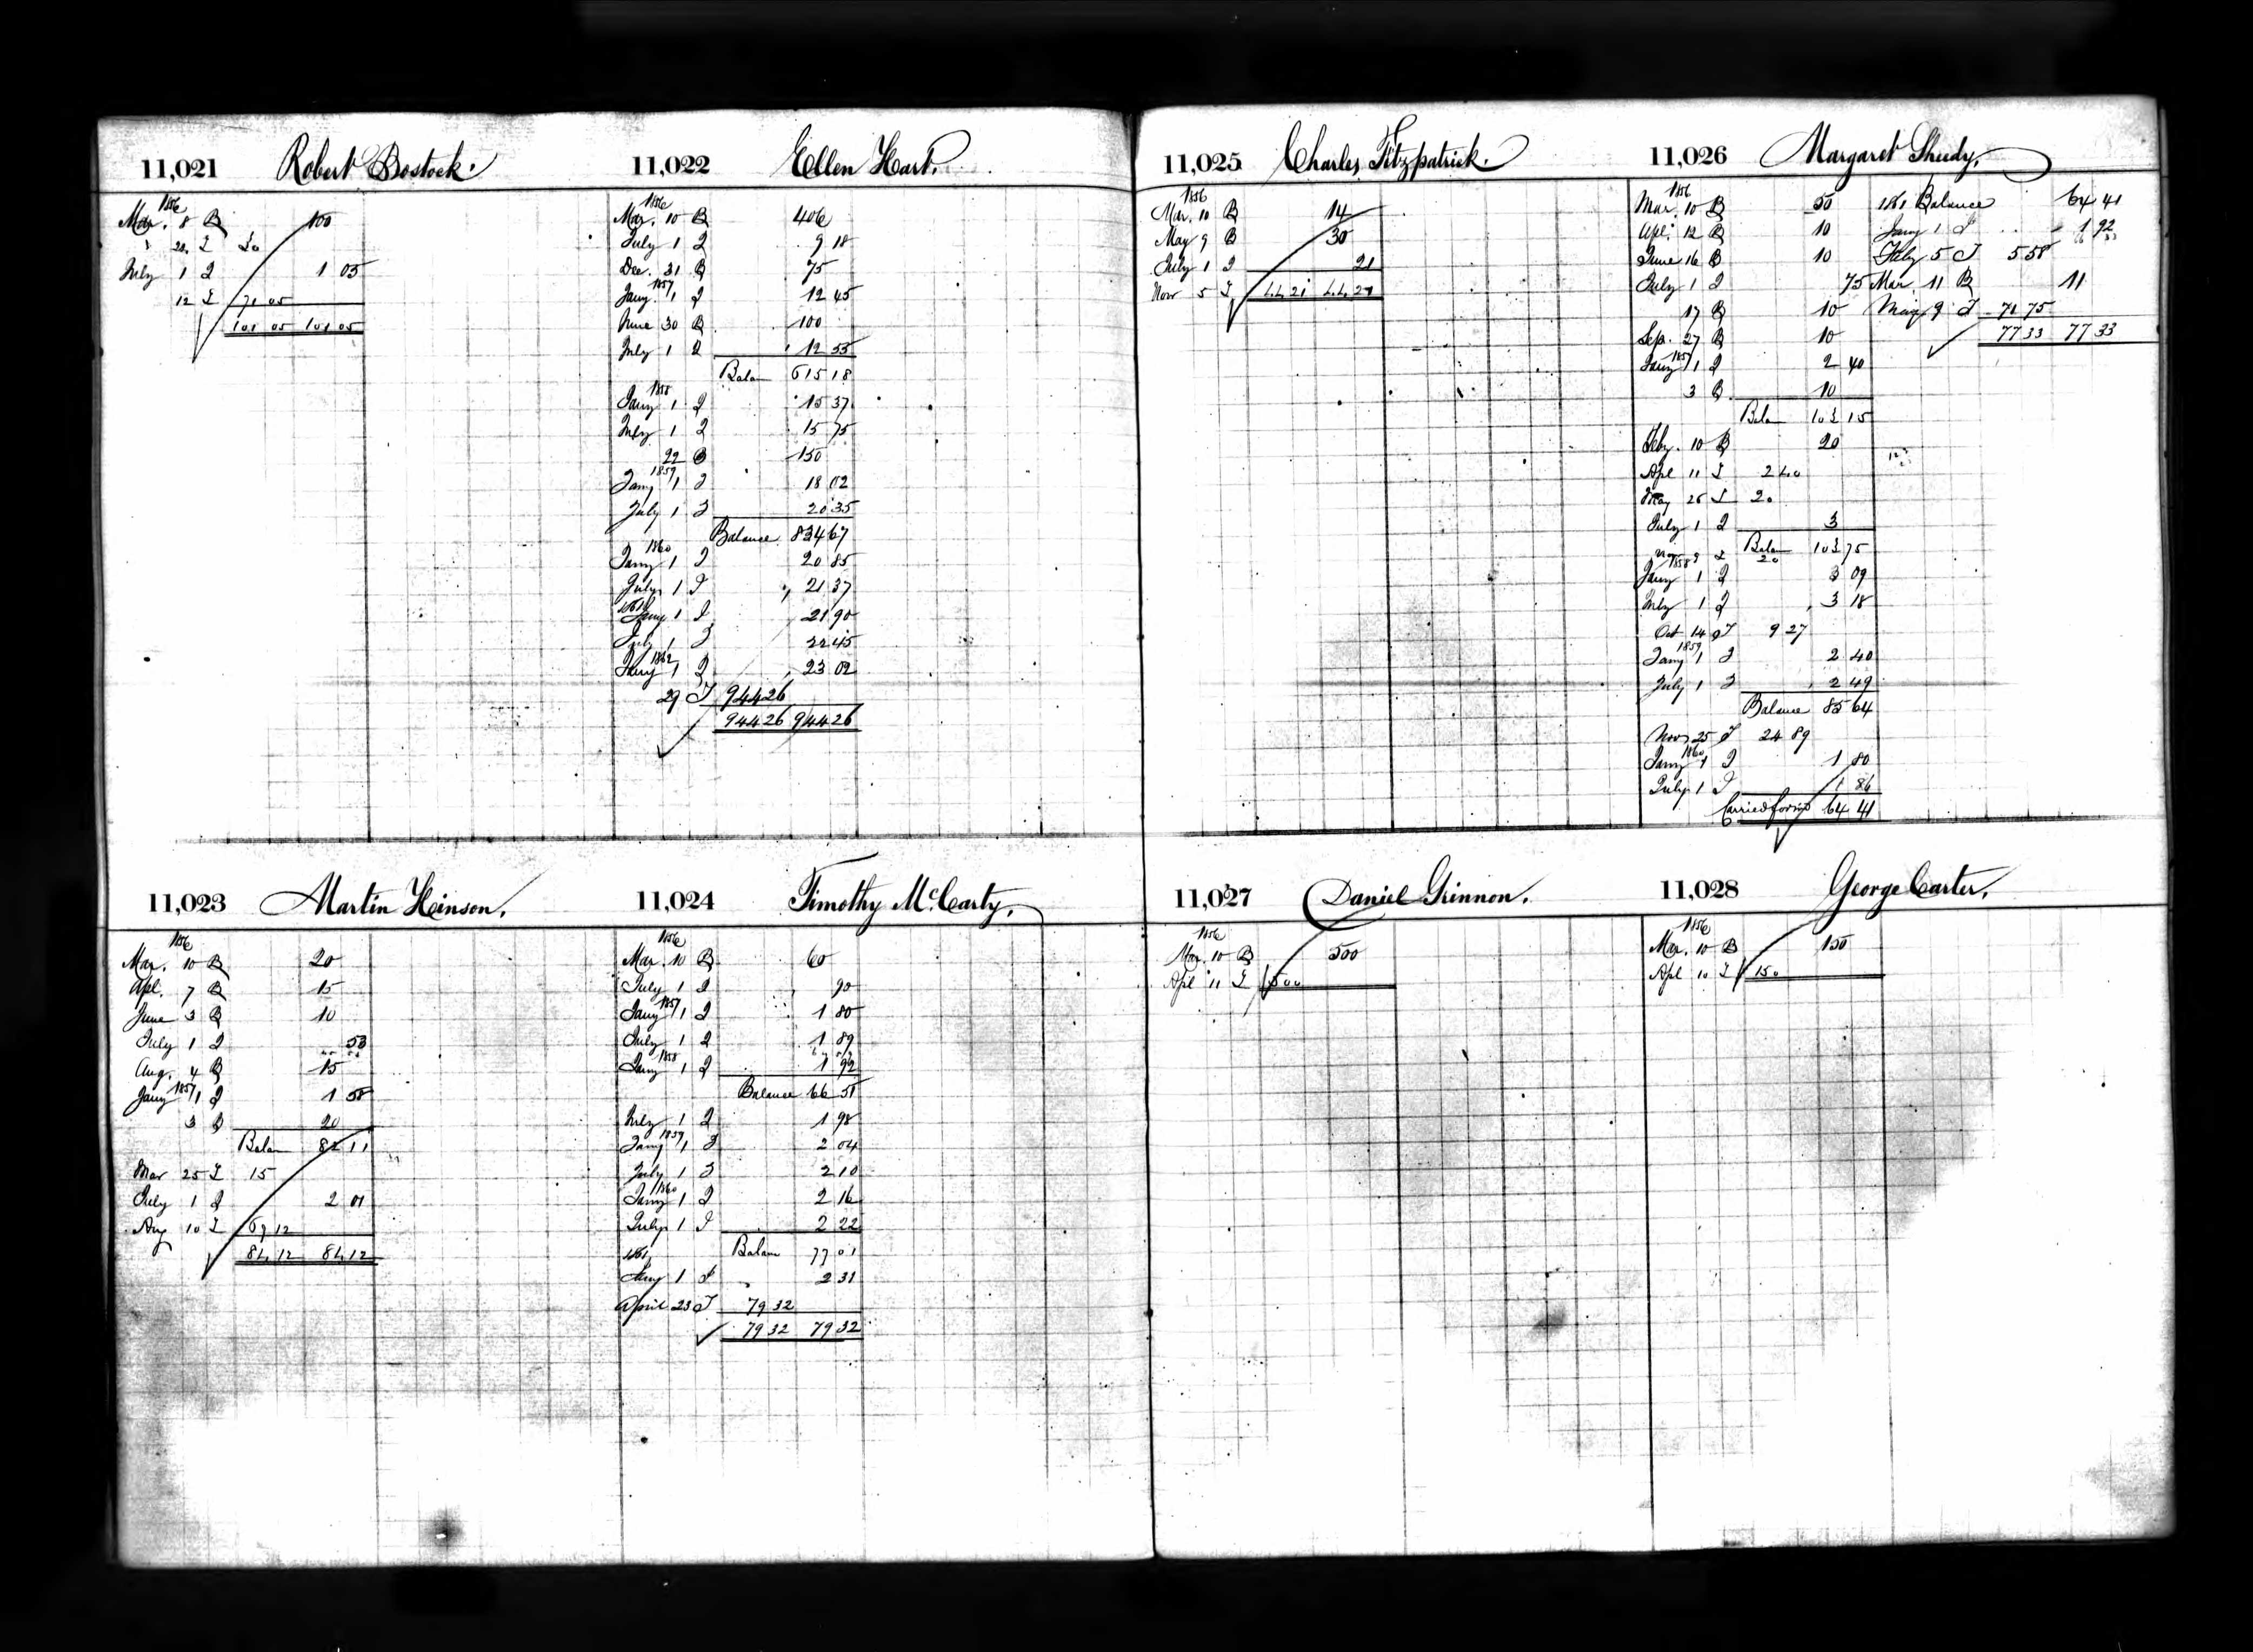 11,021 Robert Bostock.
1856
Mar. 8 B 100
" 20 T 30
July 1 I 1 05
12 T 71 05
101 05 101 05
11,022 Ellen Hart.
1856
Mar. 10 B 406
July 1 I 9 18
Dec. 31 B 75
1857
Jany. 1 I 12 45
June 30 B 100
July 1 I 12 55
Balan 615 18
1858
Jany 1 I 15 37
July 1 I 15 75
22 B 150
1859
Jany 1 I 18 02
July 1 I 20 35
Balance 834 67
1860
Jany 1 I 20 85
July 1 I 21 37
1861
Jany 1 I 21 90
July 1 I 22 45
1862
Jany 1 I 23 02
29 T 944 26
944 26 944 26
11,023 Martin Heinson.
1856
Mar. 10 B 20
Apl. 7 B 15
June 3 B 10
July 1 I 53
Aug. 4 B 15
1857
Jany 1 I 1 58
3 B 20
Balan 82 11
Mar 25 T 15
July 1 I 2 01
Aug 10 T 69 12
84 12 84 12
11,024 Timothy McCarty.
1856
Mar. 10 B 60
July 1 I 90
1857
Jany 1 I 1 80
July 1 I 1 89
1858
Jany 1 I 1 92
Balance 66 51
July 1 I 1 98
1859
Jany 1 I 2 04
July 1 I 2 10
1860
Jany 1 I 2 16
July 1 I 2 22
Balan 77 01
1861
Jany 1 I 2 31
April 23 T 79 32
79 32 79 32
11,025 Charles Fitzpatrick.
1856
Mar. 10 B 14
May 9 B 30
July 1 I 21
Nov 5 T 44 21 44 21
11,026 Margaret Sheedy.
1856
Mar. 10 B 50
Apl. 12 B 10
June 16 B 10
July 1 I 75
17 B 10
Sep. 27 B 10
1857
Jany 1 I 2 40
3 B 10
Balan 103 15
Feby. 10 B 20
Apl 11 T 2 40
May 26 T 20
July 1 I 3
Balan 103 75
Nov 9 T 20
1858
Jany 1 I 3 09
July 1 I 3 18
Oct 14 T 9 27
1859
Jany 1 I 2 40
July 1 I 2 49
Balance 85 64
Nov 25 T 24 89
1860
Jany 1 I 1 80
July 1 I 1 86
Carried forwd 64 41
1861 Balance 64 41
Jany 1 I 1 92
Feby 5 T 5 58
Mar. 11 B 11
May 9 T 71 75
77 33 77 33
11,027 Daniel Grinnon.
1856
Mar. 10 B 500
Apl 11 T 500
11,028 George Carter.
1856
Mar. 10 B 150
Apl 10 T 150